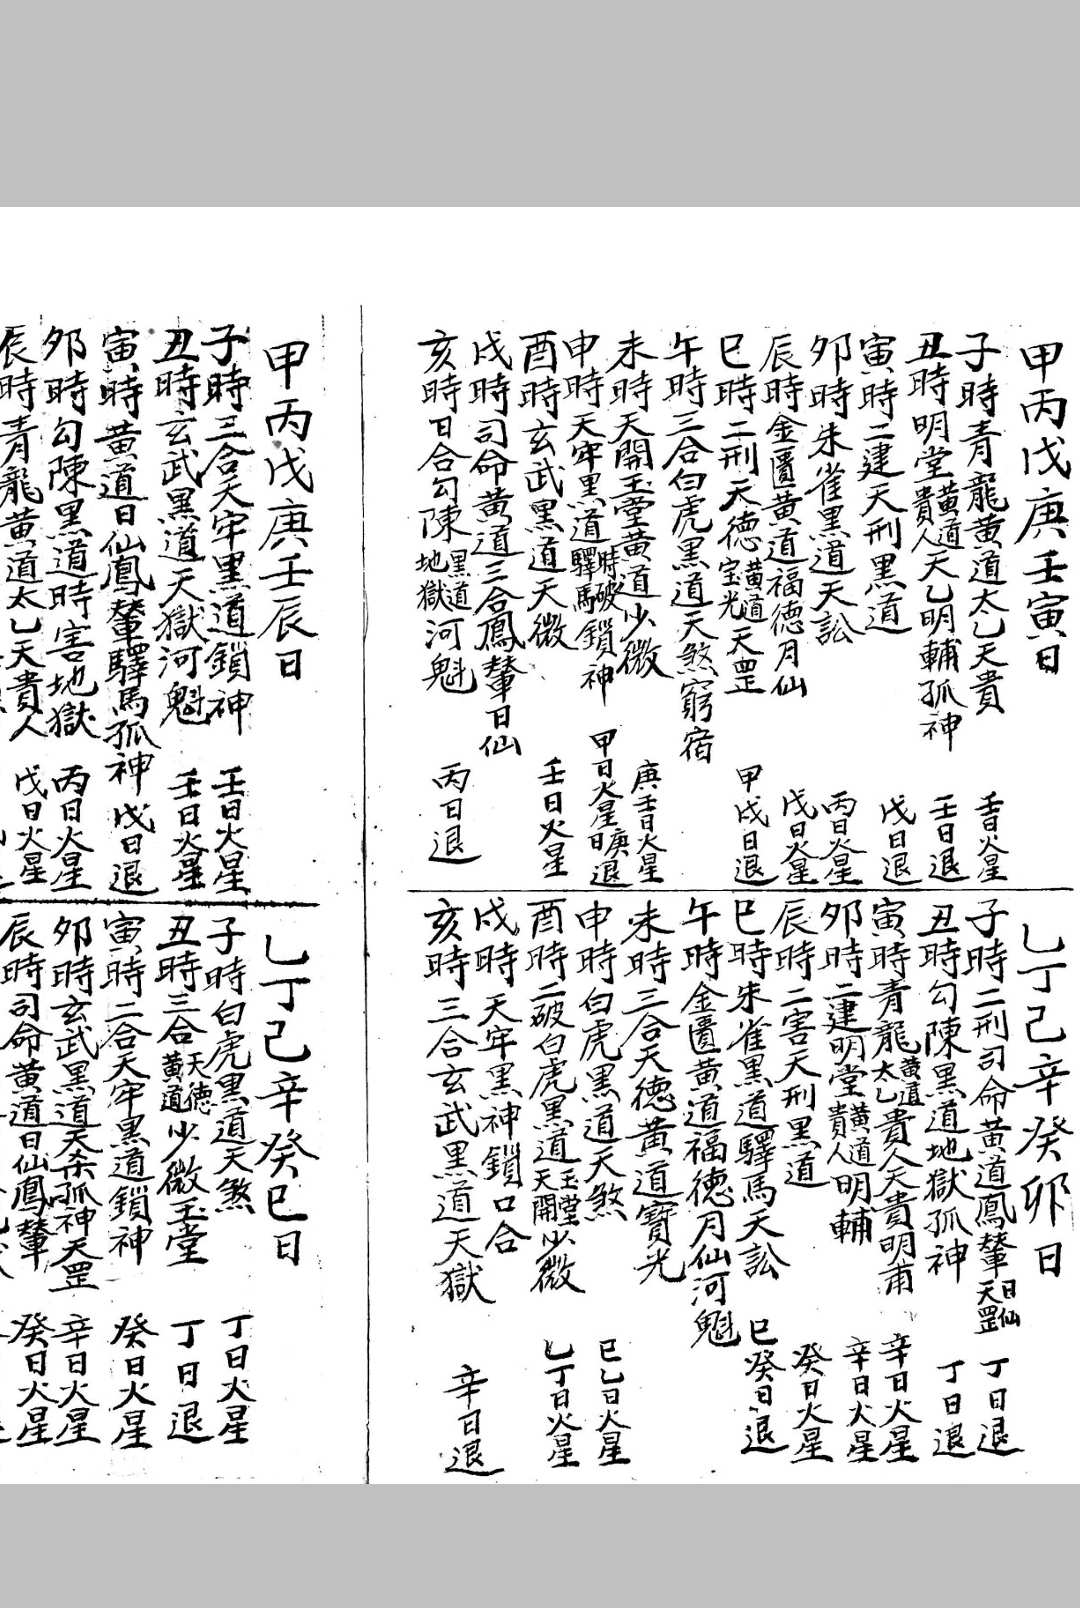 甲丙戊庚壬寅日
子時青龍黃道太乙天貴 壬日火星
丑時明堂黃道貴人天乙明輔孤神 壬日退
寅時二建天刑黑道 戊日退
卯時朱雀黑道天訟 丙日火星
辰時金匱黃道福德月仙 戊日火星
巳時二刑天德黃道宝光天罡 甲戊日退
午時三合白虎黑道天煞窮宿
未時天開玉堂黃道少微 庚壬日火星
申時天牢黑道時破驛馬鎖神 甲日火星庚日退
酉時玄武黑道天微 壬日火星
戌時司命黃道三合鳳輦日仙
亥時日合勾陳黑道地獄河魁 丙日退
乙丁己辛癸卯日
子時二刑司命黃道鳳輦日仙天罡 丁日退
丑時勾陳黑道地獄孤神 丁日退
寅時青龍黃道太乙貴人天貴明甫 辛日火星
卯時二建明堂黃道貴人明輔 辛日火星
辰時二害天刑黑道 癸日火星
巳時朱雀黑道驛馬天訟 巳癸日退
午時金匱黃道福德月仙河魁
未時三合天德黃道寶光
申時白虎黑道天煞 巳乙日火星
酉時二破白虎黑道玉堂天開少微 乙丁日火星
戌時天牢黑神鎖口合
亥時三合玄武黑道天獄 辛日退
甲丙戊庚壬辰日
子時三合天牢黑道鎖神 壬日火星
丑時玄武黑道天獄河魁 壬日火星
寅時黃道日仙鳳輦驛馬孤神 戊日退
卯時勾陳黑道時害地獄 丙日火星
辰時青龍黃道太乙天貴人 戊日火星
乙丁己辛癸巳日
子時白虎黑道天煞 丁日火星
丑時三合天德黃道少微玉堂 丁日退
寅時二合天牢黑道鎖神 癸日火星
卯時玄武黑道天杀孤神天罡 辛日火星
辰時司命黃道日仙鳳輦 癸日火星